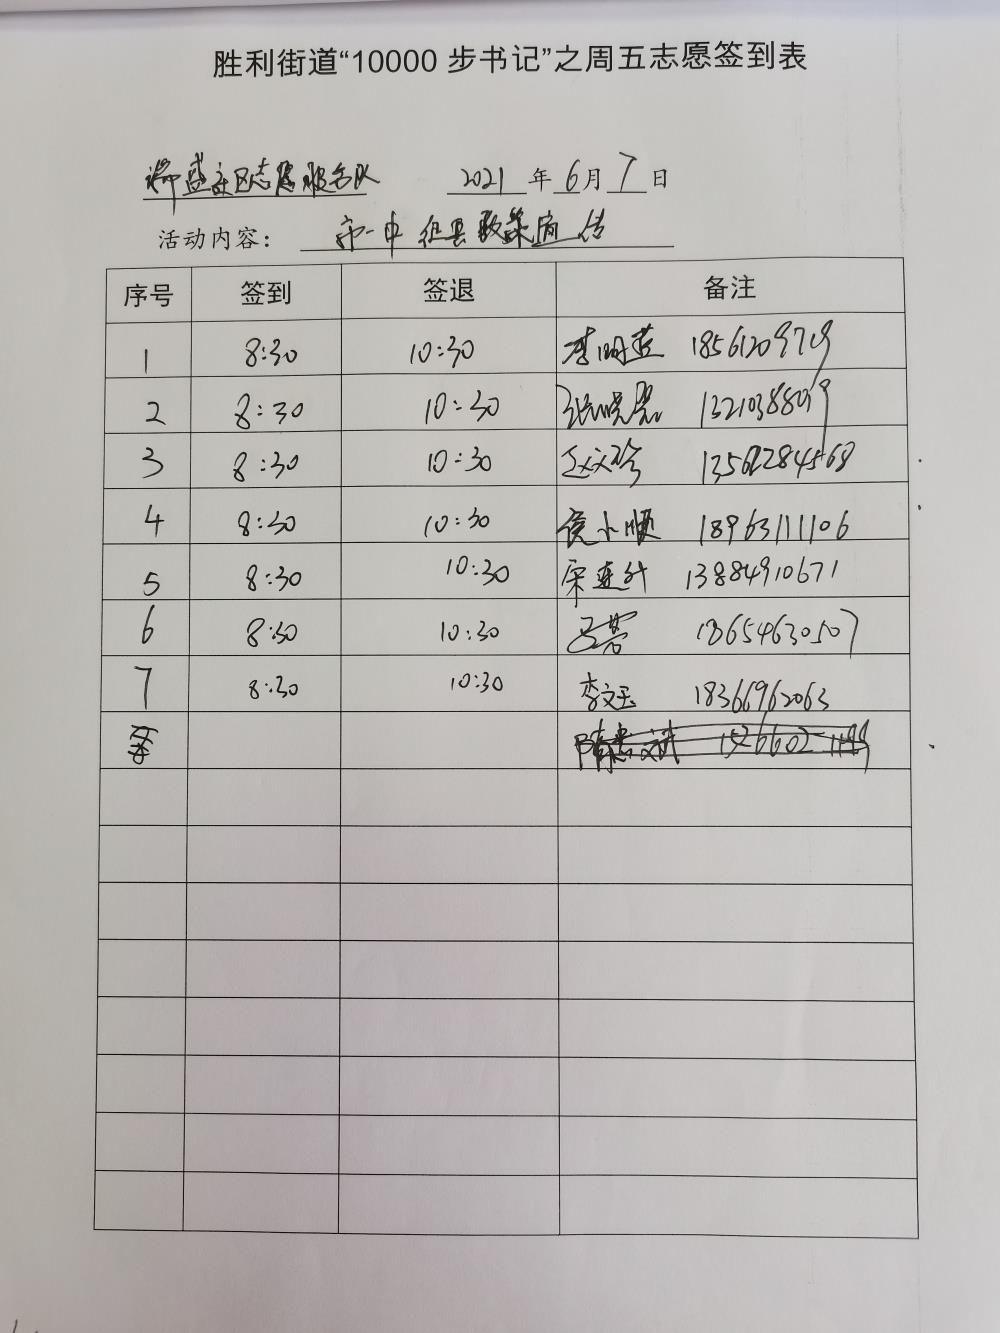 胜利街道“10000 步书记”之周五志愿签到表
盛社区志愿服务队 2021 年 6 月 7 日
活动内容： 宣传
序号 签到 签退 备注
1 8:30 10:30 李明 18561209719
2 8:30 10:30 张晓 13210388019
3 8:30 10:30 13562284568
4 8:30 10:30 侯小顺 18963111106
5 8:30 10:30 宋 13884910671
6 8:30 10:30 18654630507
7 8:30 10:30 李文玉 18366962063